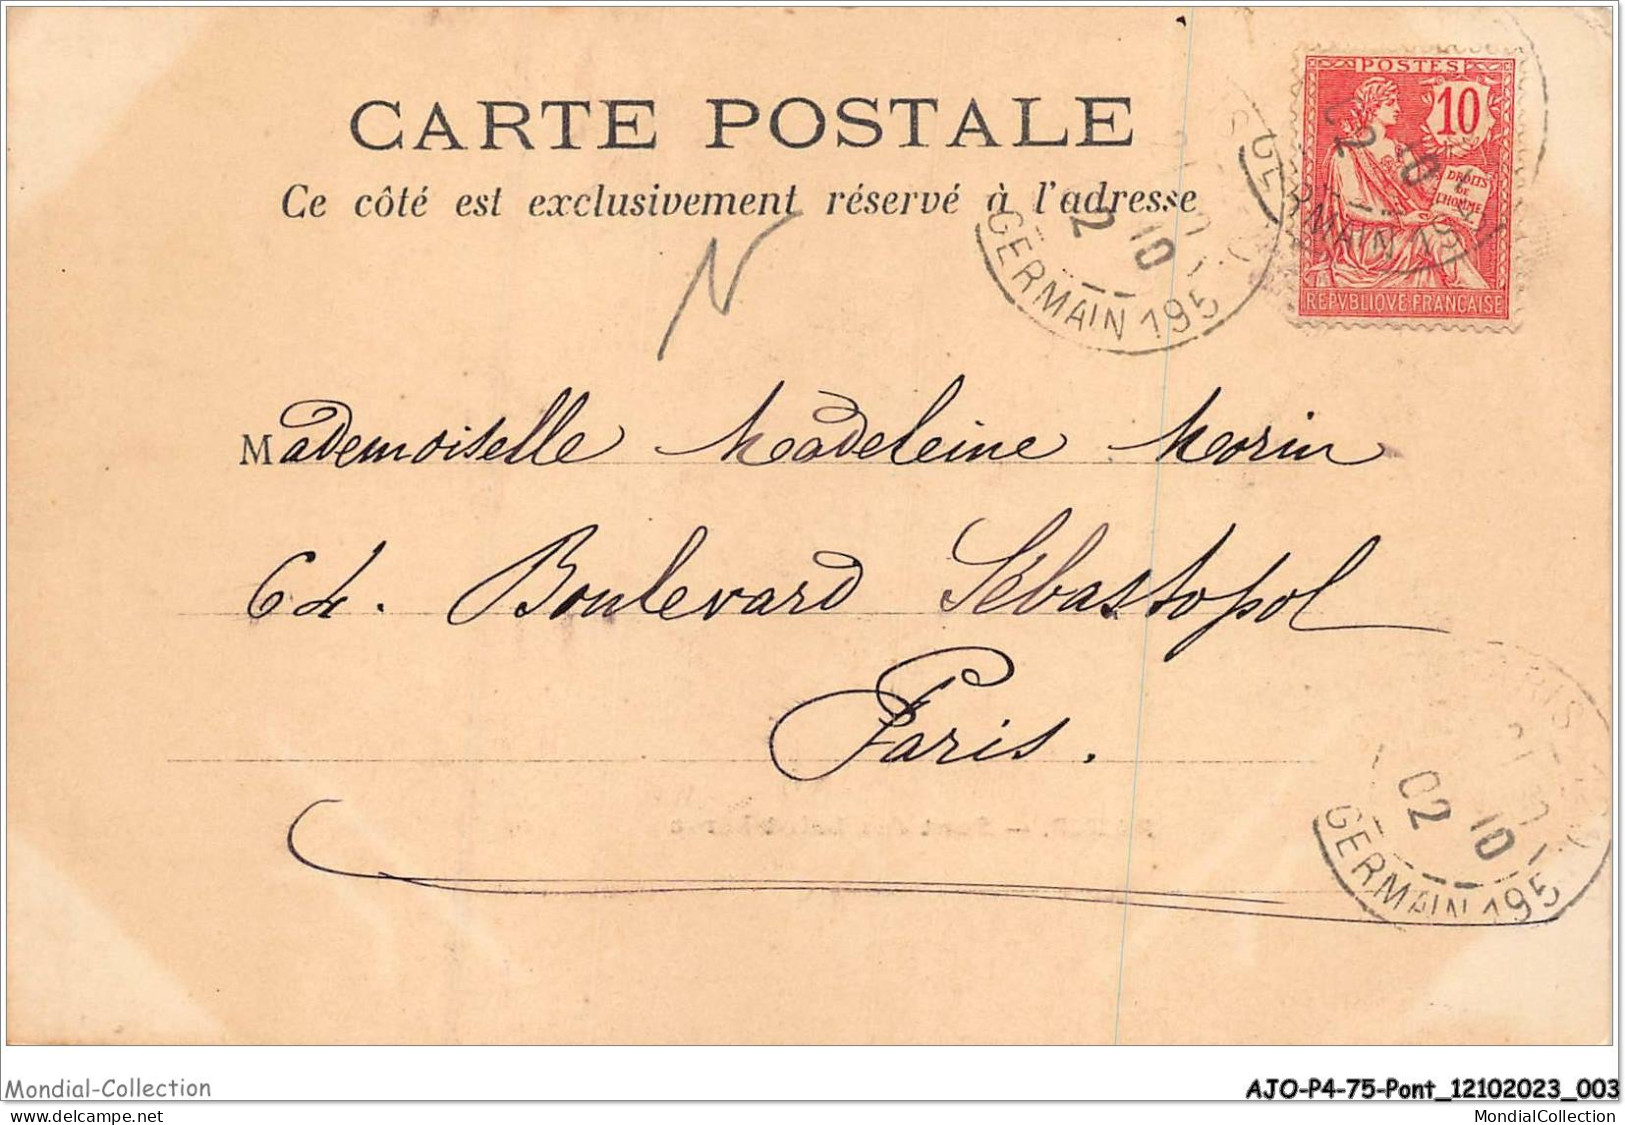 CARTE POSTALE
Ce côté est exclusivement réservé à l'adresse
POSTES
10
DROITS DE L'HOMME
REPVBLIQVE FRANÇAISE
GERMAIN 195
10
02
GERMAIN 19
10
02
Mademoiselle Madeleine Morin
64. Boulevard Sébastopol
Paris.
GERMAIN 195
10
02
Mondial-Collection
AJO-P4-75-Pont_12102023_003
MondialCollection